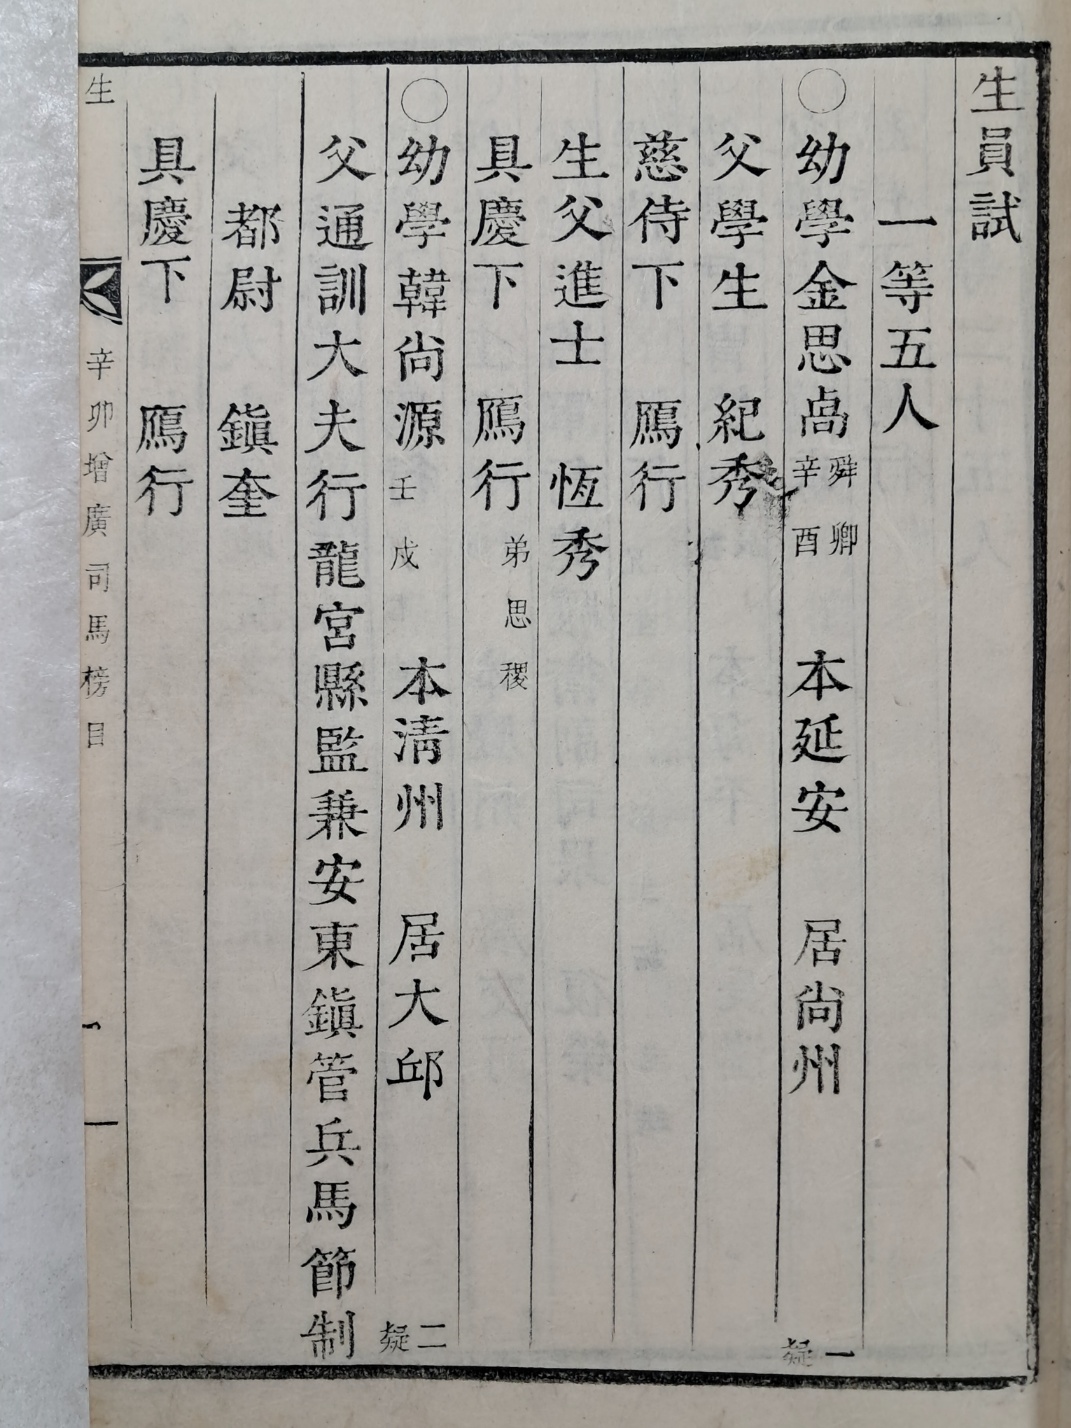 生員試
一等五人
○幼學金思卨舜卿辛酉 本延安 居尙州 一疑
父學生 紀秀
慈侍下 鴈行
生父進士 恆秀
具慶下 鴈行弟思稷
○幼學韓尙源壬戌 本淸州 居大邱 二疑
父通訓大夫行龍宮縣監兼安東鎭管兵馬節制
都尉 鎭奎
具慶下 鴈行
生 辛卯增廣司馬榜目 一